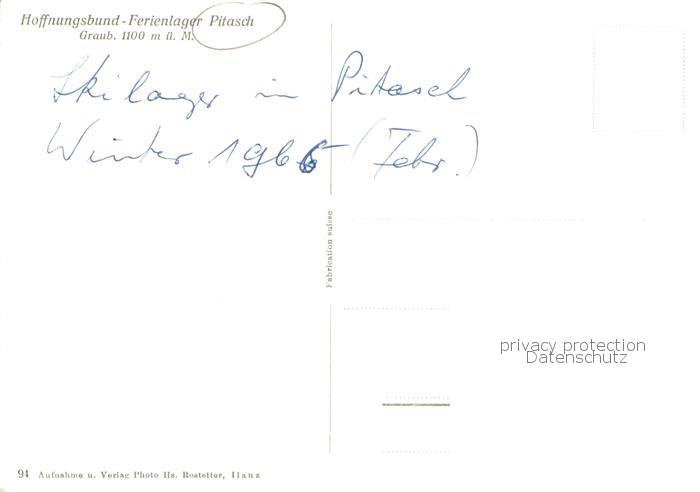 Hoffnungsbund-Ferienlager Pitasch
Graub. 1100 m ü. M.
Skilager in Pitasch
Winter 1966 (Febr.)
Fabrication suisse
privacy protection
Datenschutz
94 Aufnahme u. Verlag Photo Hs. Rostetter, Ilanz